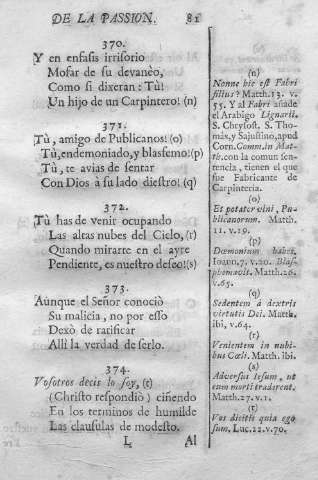 DE LA PASSION. 81
370.
Y en enfasis irrisorio
Mofar de su devanèo,
Como si dixeran: Tù!
Un hijo de un Carpintero! (n)
371.
Tù, amigo de Publicanos! (o)
Tù, endemoniado, y blasfemo! (p)
Tù, te avias de sentar
Con Dios à su lado diestro! (q)
372.
Tù has de venir ocupando
Las altas nubes del Cielo, (r)
Quando mirarte en el ayre
Pendiente, es nuestro deseo! (s)
373.
Aunque el Señor conociò
Su malicia, no por esso
Dexò de ratificar
Alli la verdad de serlo.
374.
Vosotros decis lo soy, (t)
(Christo respondiò) ciñendo
En los terminos de humilde
Las clausulas de modesto.
L Al
(n)
Nonne hic est Fabri
filius? Matth. 13. v.
55. Y al Fabri añade
el Arabigo Lignarii.
S. Chrysost. S. Tho-
màs, y Sajustino, apud
Corn. Comm. in Mat-
th. con la comun sen-
tencia, tienen el que
fue Fabricante de
Carpinteria.
(o)
Et potator vini, Pu-
blicanorum. Matth.
11. v. 19.
(p)
Dæmonium habes,
Ioann. 7. v. 20. Blas-
phemavit. Matth. 26.
v. 65.
(q)
Sedentem à dextris
virtutis Dei. Matth.
ibi, v. 64.
(r)
Venientem in nubi-
bus Cœli. Matth. ibi.
(s)
Adversus Iesum, ut
eum morti traderent.
Matth. 27. v. 1.
(t)
Vos dicitis quia ego
sum, Luc. 22. v. 70.